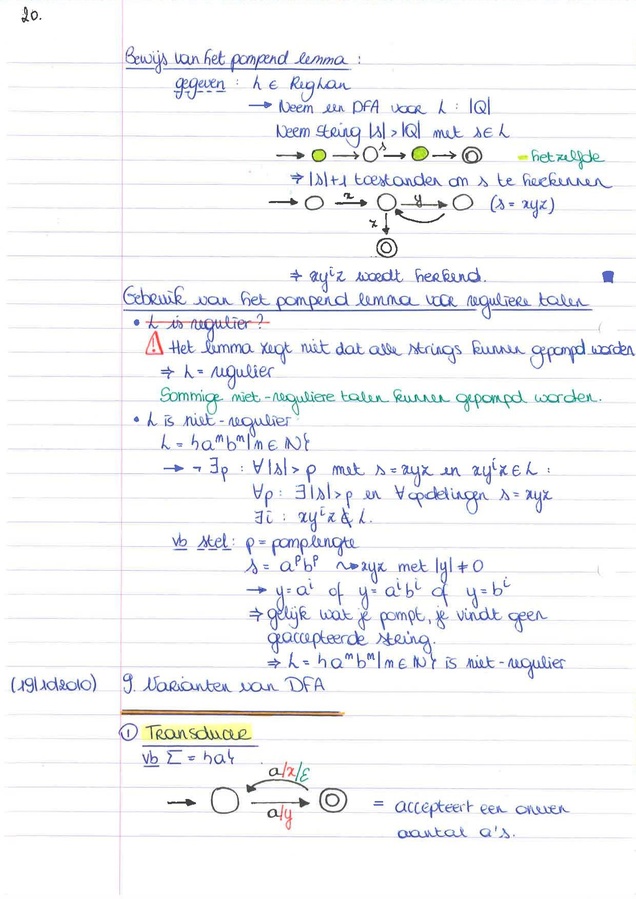 20.
Bewijs van het pompend lemma :
gegeven : L ∈ RegLan
→ Neem een DFA voor L : |Q|
Neem string |s| > |Q| met s ∈ L
s
- hetzelfde
⇒ |s|+1 toestanden om s te herkennen
x y (s = xyz)
z
⇒ xyⁱz wordt herkend.
Gebruik van het pompend lemma voor reguliere talen
• L is regulier?
! Het lemma zegt niet dat alle strings kunnen gepompd worden
⇒ L = regulier
Sommige niet-reguliere talen kunnen gepompd worden.
• L is niet-regulier
L = {aⁿbⁿ | n ∈ ℕ}
→ ¬∃p : ∀|s| > p met s = xyz en xyⁱz ∈ L :
∀p : ∃|s| > p en ∀ opdelingen s = xyz
∃i : xyⁱz ∉ L.
vb stel : p = pomplengte
s = aᵖbᵖ ⇝ xyz met |y| ≠ 0
→ y = aⁱ of y = aⁱbⁱ of y = bⁱ
⇒ gelijk wat je pompt, je vindt geen
geaccepteerde string.
⇒ L = {aⁿbⁿ | n ∈ ℕ} is niet-regulier
(19/10/2010) 9. Varianten van DFA
① Transducer
vb Σ = {a}
a/x/ε
a/y
= accepteert een oneven
aantal a's.